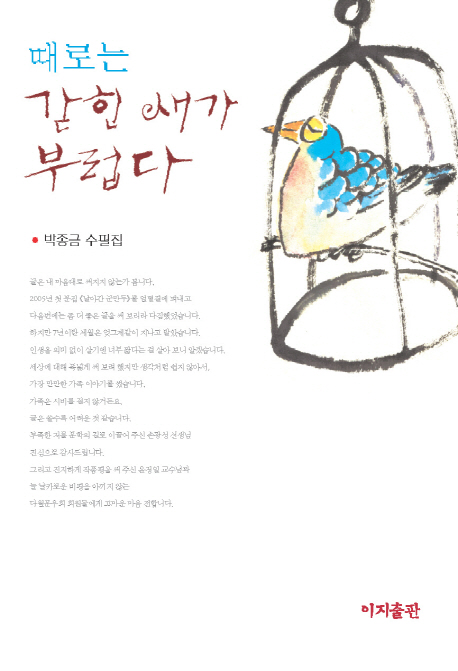 때로는
갇힌 새가
부럽다
박종금 수필집
글은 내 마음대로 써지지 않는가 봅니다.
2005년 첫 문집 《날아간 군만두》를 엉겁결에 펴내고
다음번에는 좀 더 좋은 글을 써 보리라 다짐했었습니다.
하지만 7년이란 세월은 엊그제같이 지나고 말았습니다.
인생을 의미 없이 살기엔 너무 짧다는 걸 살아 보니 알겠습니다.
세상에 대해 폭넓게 써 보려 했지만 생각처럼 쉽지 않아서,
가장 만만한 가족 이야기를 썼습니다.
가족은 시비를 걸지 않거든요.
글은 쓸수록 어려운 것 같습니다.
부족한 저를 문학의 길로 이끌어 주신 손광성 선생님
진심으로 감사드립니다.
그리고 진지하게 작품평을 써 주신 윤정일 교수님과
늘 날카로운 비평을 아끼지 않는
다월문우회 회원들에게 고마운 마음 전합니다.
이지출판